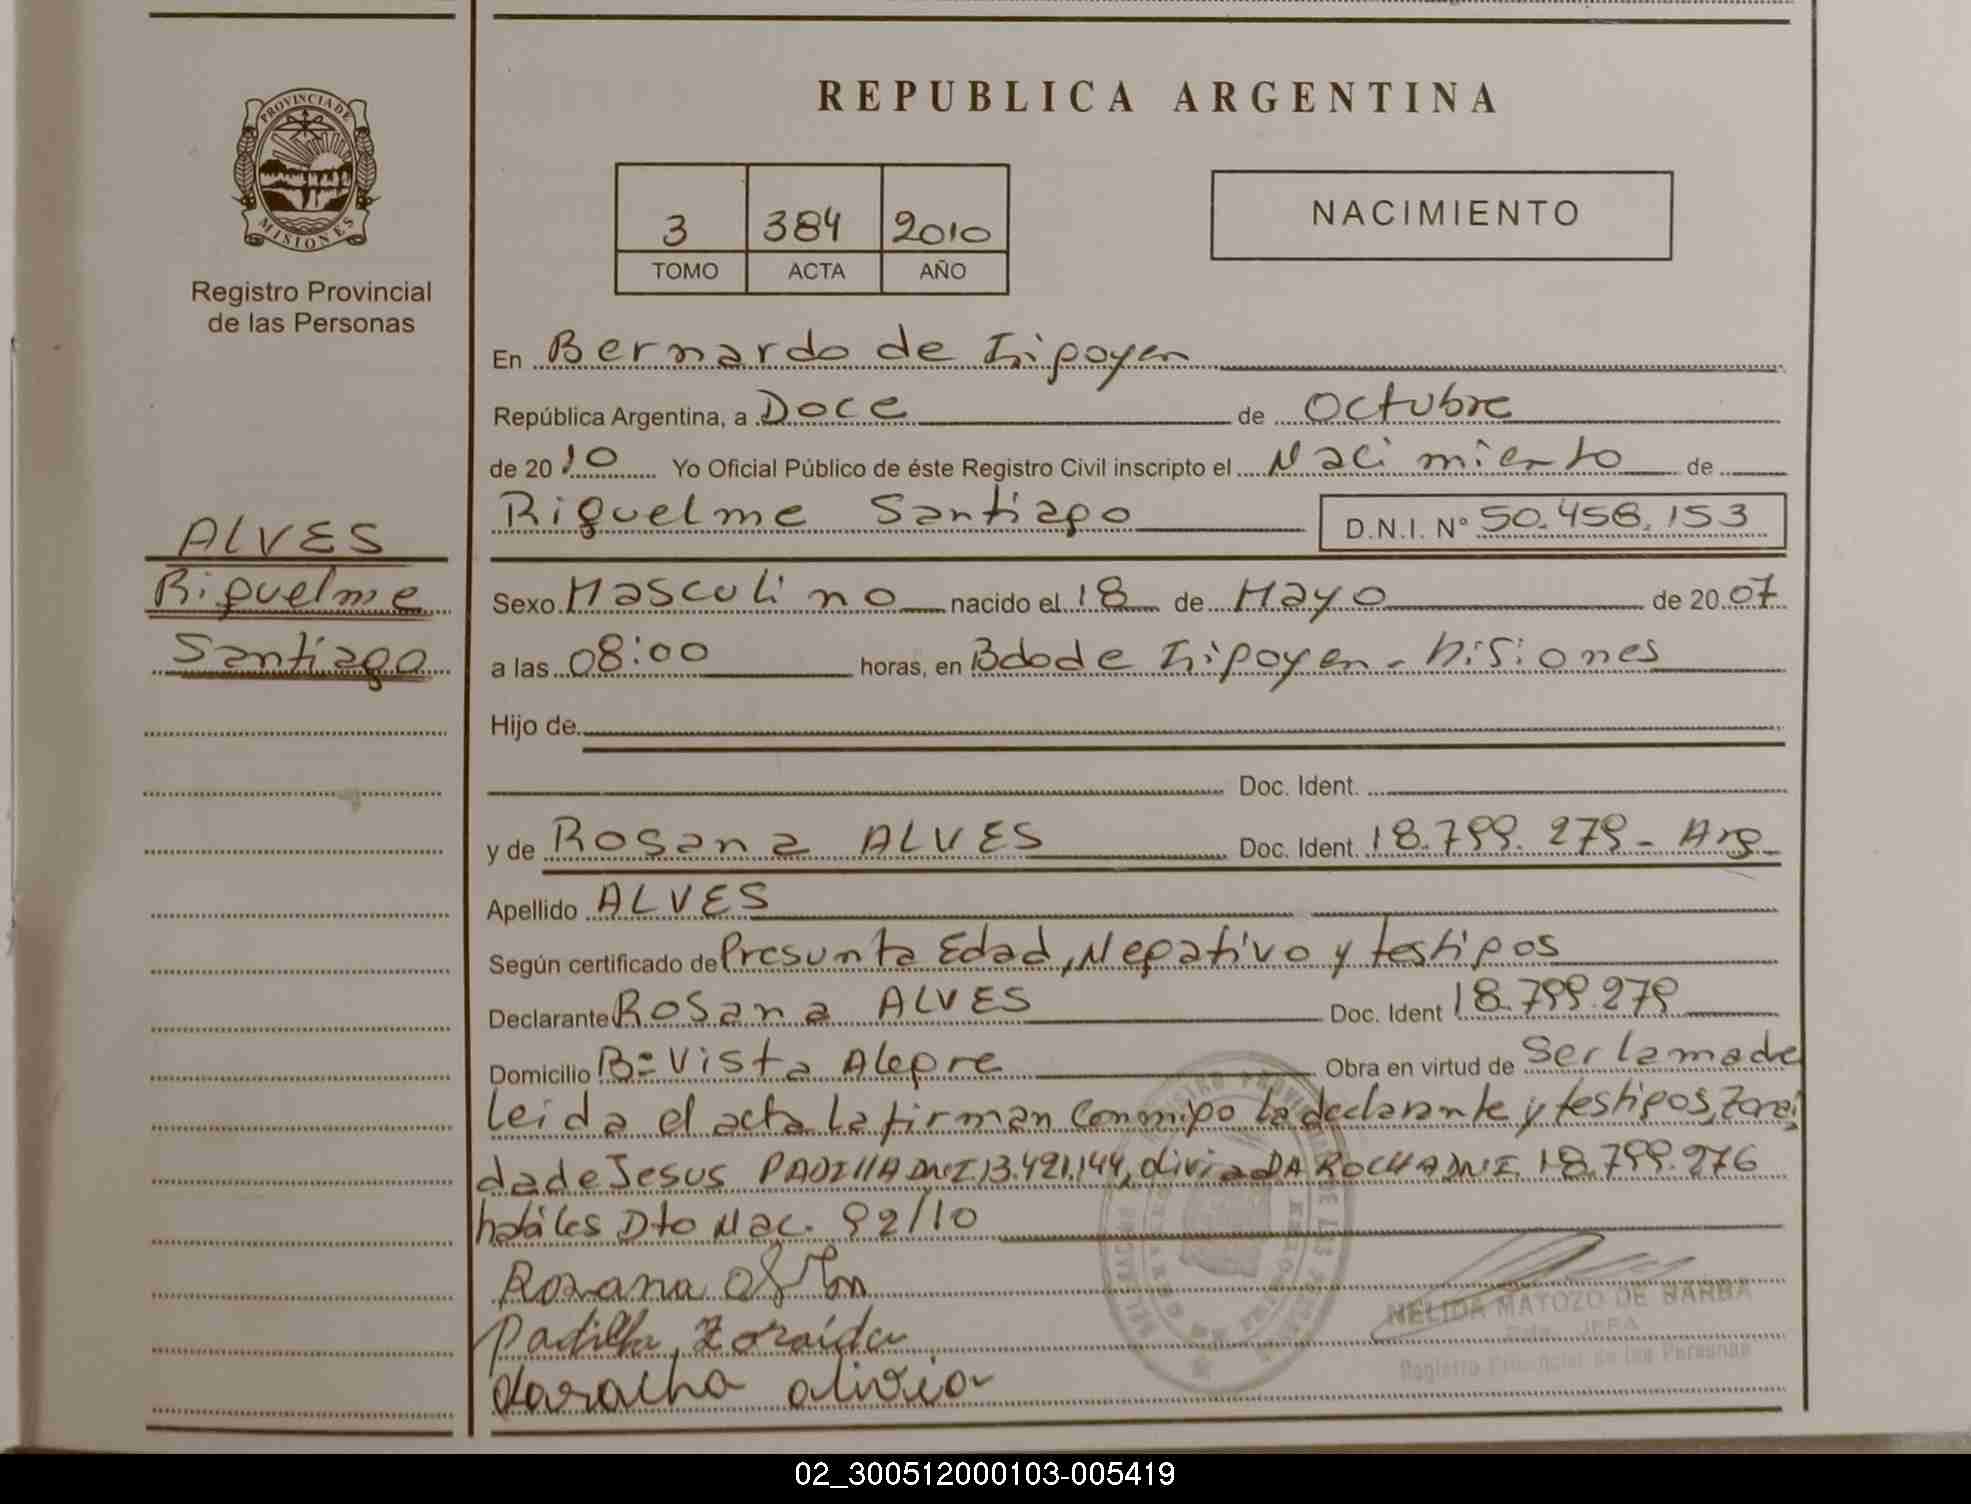 REPUBLICA ARGENTINA
PROVINCIA DE MISIONES
Registro Provincial
de las Personas
3 384 2010
TOMO ACTA AÑO
NACIMIENTO
ALVES
Riguelme
Santiago
En Bernardo de Irigoyen
República Argentina, a Doce de Octubre
de 2010 Yo Oficial Público de éste Registro Civil inscripto el Nacimiento de
Riguelme Santiago D.N.I. N° 50.456.153
Sexo Masculino nacido el 18 de Mayo de 2007
a las 08:00 horas, en Bdo de Irigoyen - Misiones
Hijo de
Doc. Ident.
y de Rosana ALVES Doc. Ident. 18.799.279 - Arg
Apellido ALVES
Según certificado de Presunta Edad, Negativo y testigos
Declarante Rosana ALVES Doc. Ident 18.799.279
Domicilio B= Vista Alegre Obra en virtud de Ser la madre
leida el acta la firman conmigo la declarante y testigos, Zorai
da de Jesus PADILLA DNI 13.421.144, olivia DA ROCHA DNI 18.799.276
habiles Dto Nac. 92/10
Rosana
Padilla Zoraida
darocha olivia
NELIDA MATOZO DE BARBA
JEFA
Registro Provincial de las Personas
02_300512000103-005419